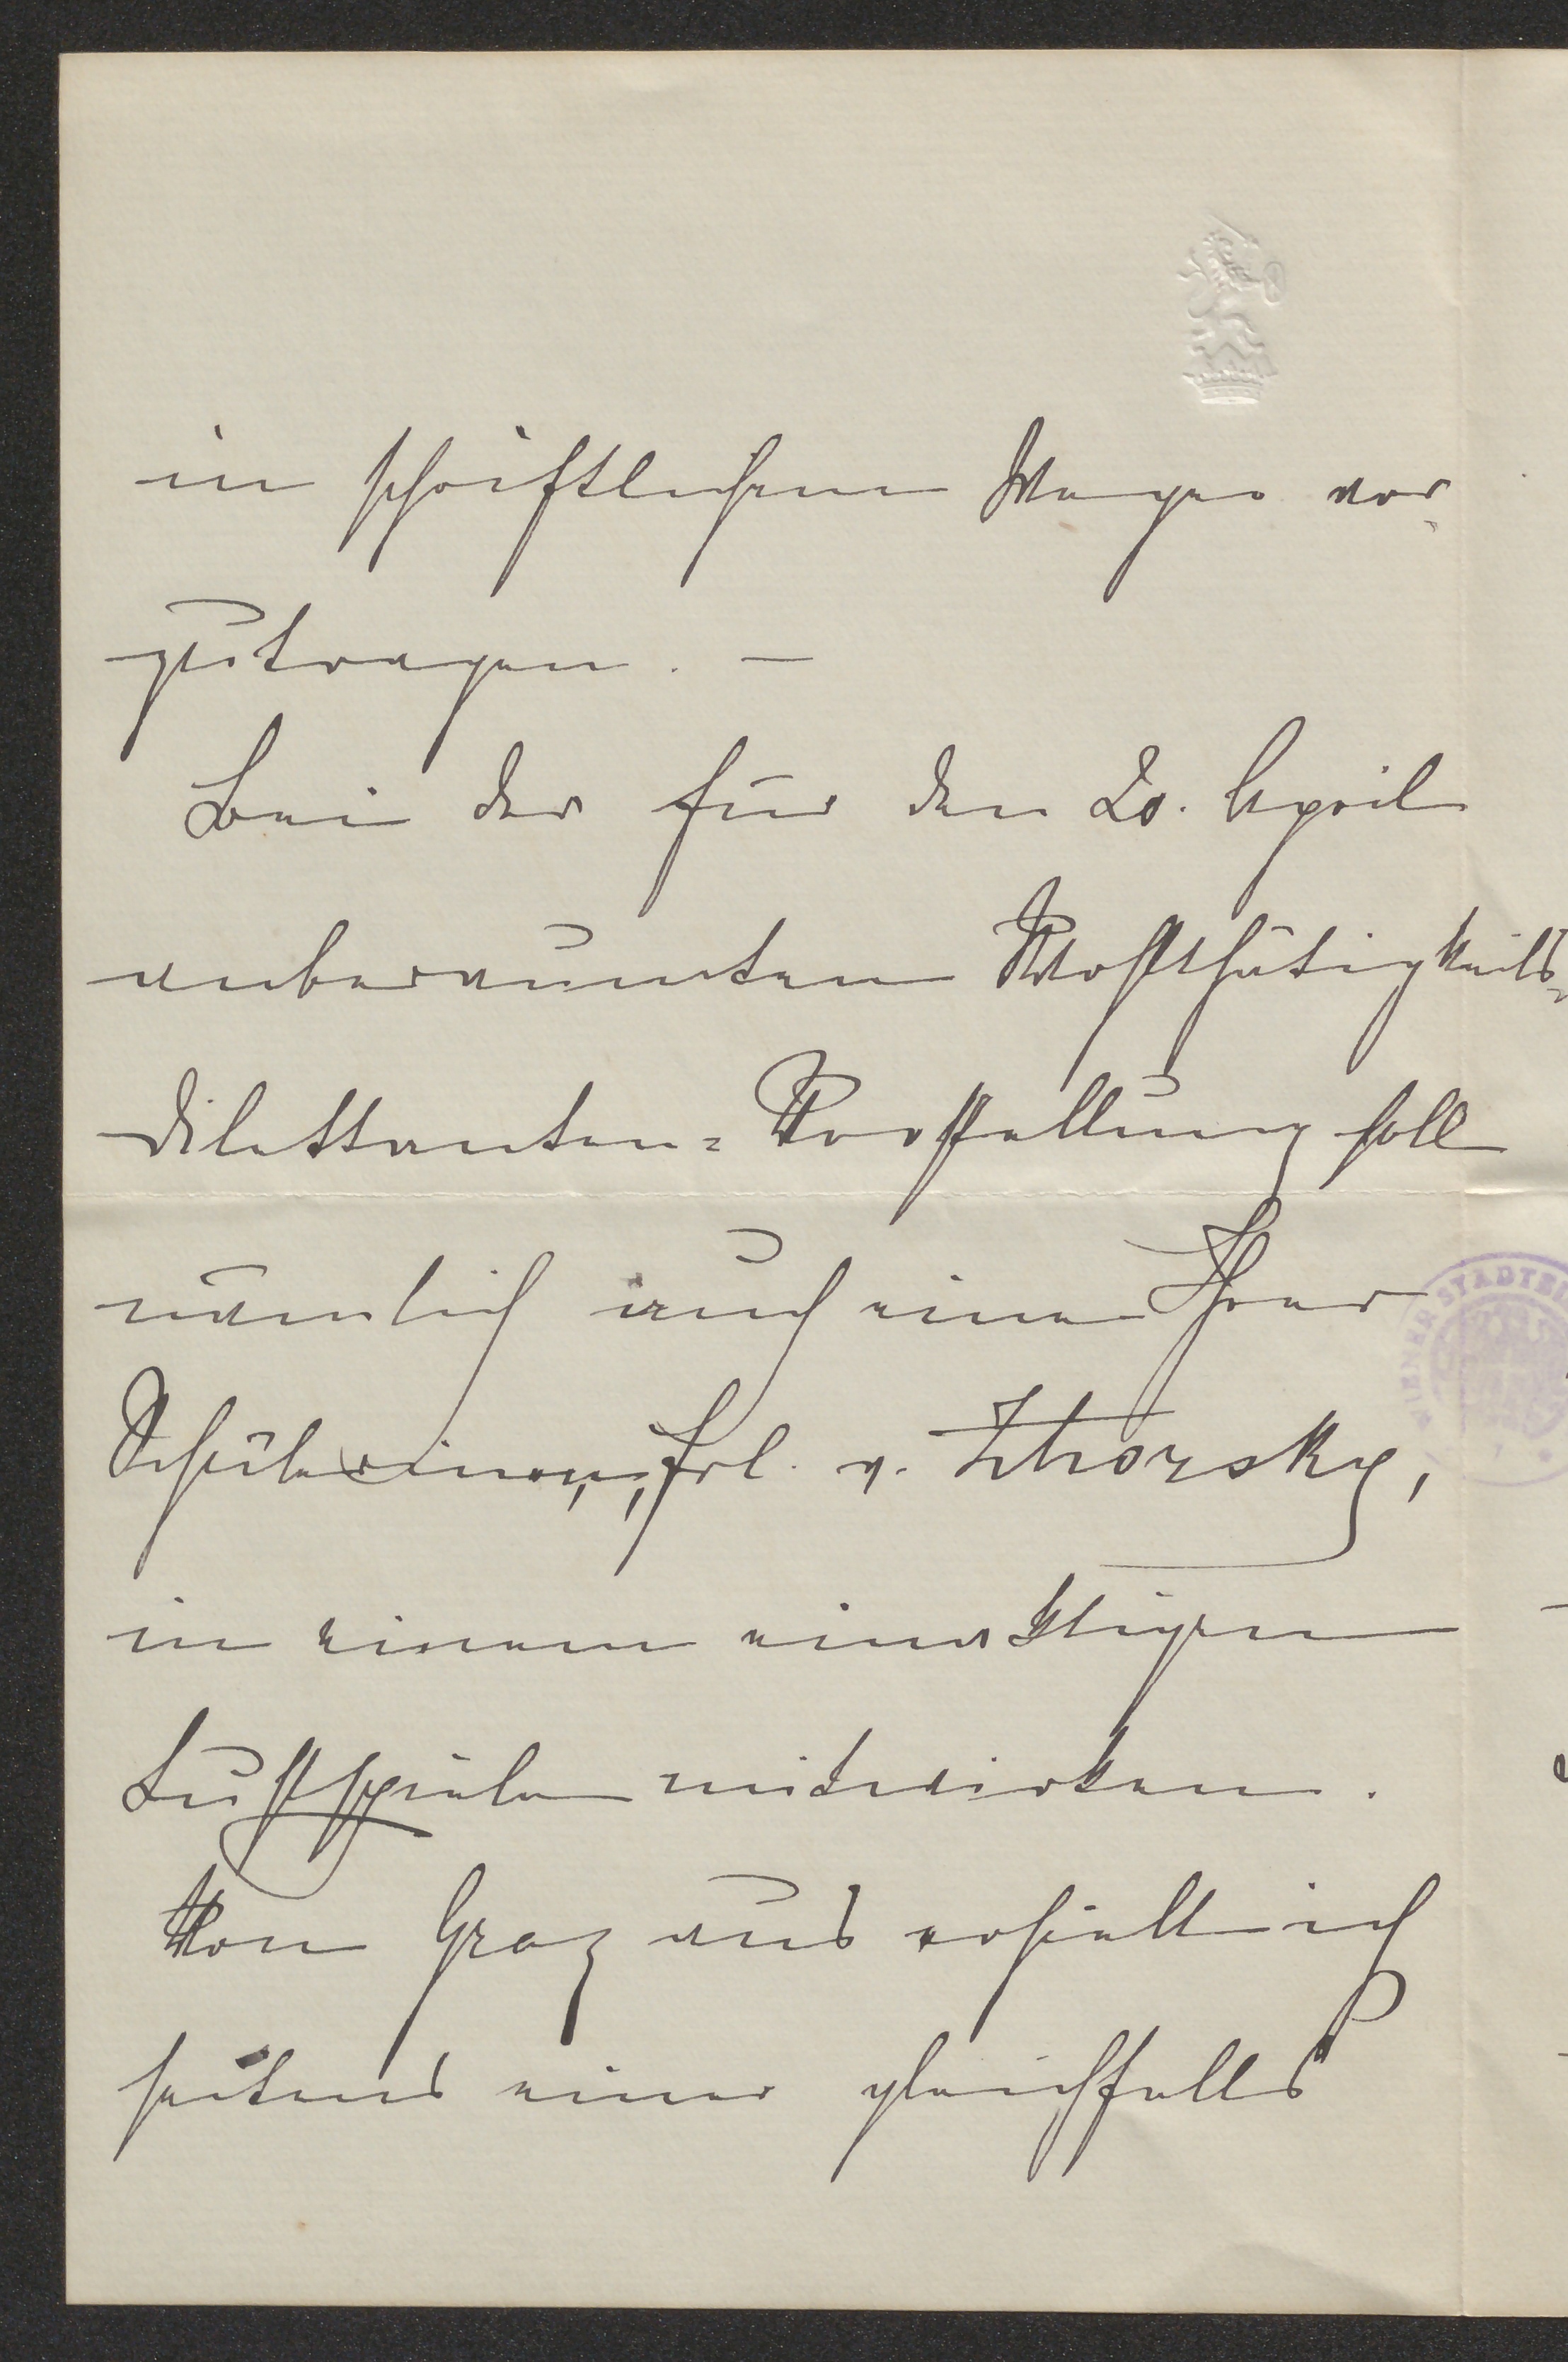 in schriftlichem Wege vor-
zutragen. —
Bei der für den 20. April
anberaumten Wohlthätigkeits-
Dilettanten-Vorstellung soll
nämlich auch eine Ihrer
Schülerinnen, Frl. v. Zhorsky,
in einem einaktigen
Lustspiele mitwirken.
Von Graz aus erhielt ich
seitens einer gleichfalls
WIENER STADTB